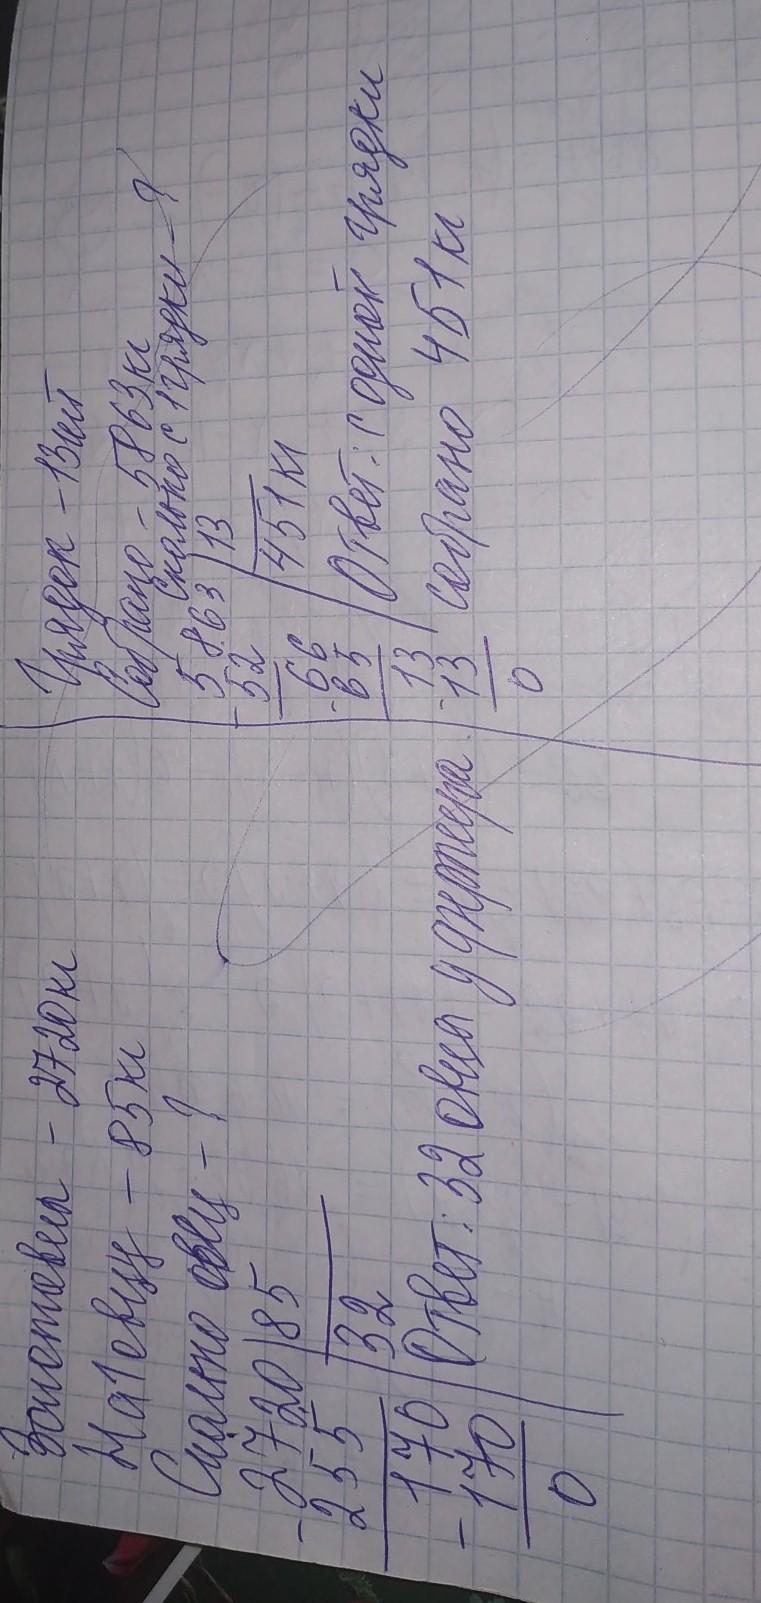 Заготовил - 2720кг
На 1 овцу - 85кг
Сколько овец - ?
-2720|85
255 32
170
-170
0
Ответ: 32 овцы у фермера.
Грядок - 13шт
Собрано - 5863кг
Сколько с 1 грядки - ?
-5863|13
52 451кг
-66
65
-13
13
0
Ответ: с одной грядки
собрано 451кг